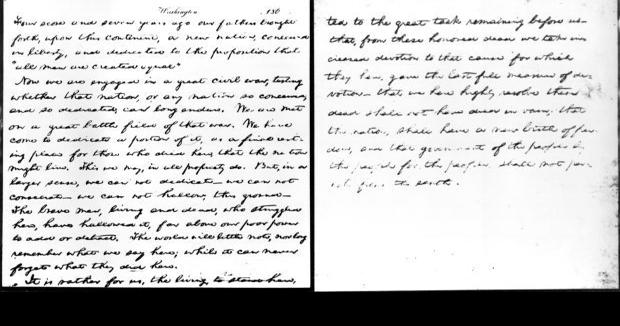 Washington , 186
Four score and seven years ago our fathers brought
forth, upon this continent, a new nation, conceived
in liberty, and dedicated to the proposition that
"all men are created equal"
Now we are engaged in a great civil war, testing
whether that nation, or any nation so conceived,
and so dedicated, can long endure. We are met
on a great battle field of that war. We have
come to dedicate a portion of it, as a final rest-
ing place for those who died here, that the nation
might live. This we may, in all propriety do. But, in a
larger sense, we can not dedicate — we can not
consecrate — we can not hallow, this ground —
The brave men, living and dead, who struggled
here, have hallowed it, far above our poor power
to add or detract. The world will little note, nor long
remember what we say here; while it can never
forget what they did here.
It is rather for us, the living, to stand here,
ted to the great task remaining before us —
that, from these honored dead we take in-
creased devotion to that cause for which
they here, gave the last full measure of de-
votion — that we here highly resolve these
dead shall not have died in vain; that
the nation, shall have a new birth of free-
dom, and that government of the people by
the people for the people, shall not per-
ish from the earth.